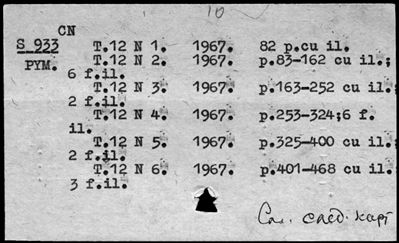 10
CN
S 933 T.12 N 1. 1967. 82 p.cu il.
РУМ. T.12 N 2. 1967. p.83-162 cu il.;
6 f.il.
T.12 N 3. 1967. p.163-252 cu il.;
2 f.il.
T.12 N 4. 1967. p.253-324;6 f.
il.
T.12 N 5. 1967. p.325-400 cu il.;
2 f.il.
T.12 N 6. 1967. p.401-468 cu il.;
3 f.il.
См. след. карт